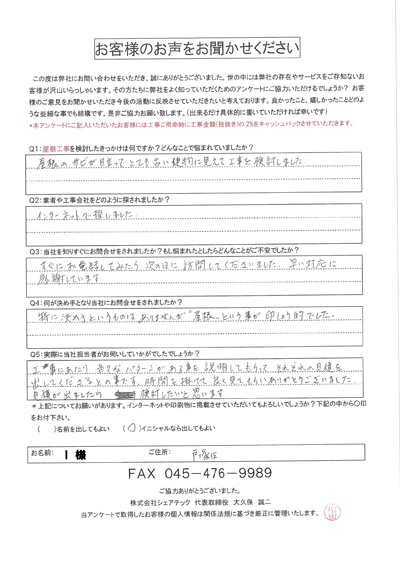 お客様のお声をお聞かせください
この度は弊社にお問い合わせをいただき、誠にありがとうございました。世の中には弊社の存在やサービスをご存知ないお
客様が沢山いらっしゃいます。その方たちに弊社をよく知っていただくためのアンケートにご協力いただけるでしょうか? お客
様のご意見をお聞かせいただき今後の活動に反映させていただきたいと考えております。良かったこと、嬉しかったことどのよ
うな些細な事でも結構です、是非ご協力お願い致します。(出来るだけ具体的に書いていただければ幸いです)
*本アンケートにご記入いただいたお客様には工事ご用命時に工事金額(税抜き)の2%をキャッシュバックさせていただきます。
Q1:屋根工事を検討したきっかけは何ですか?どんなことで悩まれていましたか?
屋根のサビが目立って とても古い建物に見えて工事を検討しました
Q2:業者や工事会社をどのように探されましたか?
インターネットで探しました.
Q3:当社を知りすぐにお問合せをされましたか?もし悩まれたとしたらどんなことがご不安でしたか?
すぐにお電話してみたら 次の日に 訪問してくださいました. 早い対応に
感謝しています
Q4:何が決め手となり当社にお問合せをされましたか?
特に決めりというものは ありませんが“屋根„という事が 印しょう的でした.
Q5:実際に当社担当者がお伺いしていかがでしたでしょうか?
工事にあたり 色々なパターンがある事を 説明してもらって それぞれの見積を
出してくださるとの事です. 時間を掛けて 良く見てもらいありがとうございました.
見積が出ましたら 検討したいと思います
*上記についてお願いがあります。インターネットや印刷物に掲載させていただいてもよろしいでしょうか?下記の中から○印
をお付下さい。
( )名前を出してもよい (○)イニシャルなら出してもよい
お名前: I 様 ご住所: 戸塚区
FAX 045-476-9989
ご協力ありがとうございました。
株式会社シェアテック 代表取締役 大久保 誠二
当アンケートで取得したお客様の個人情報は関係法規に基づき厳正に管理いたします。